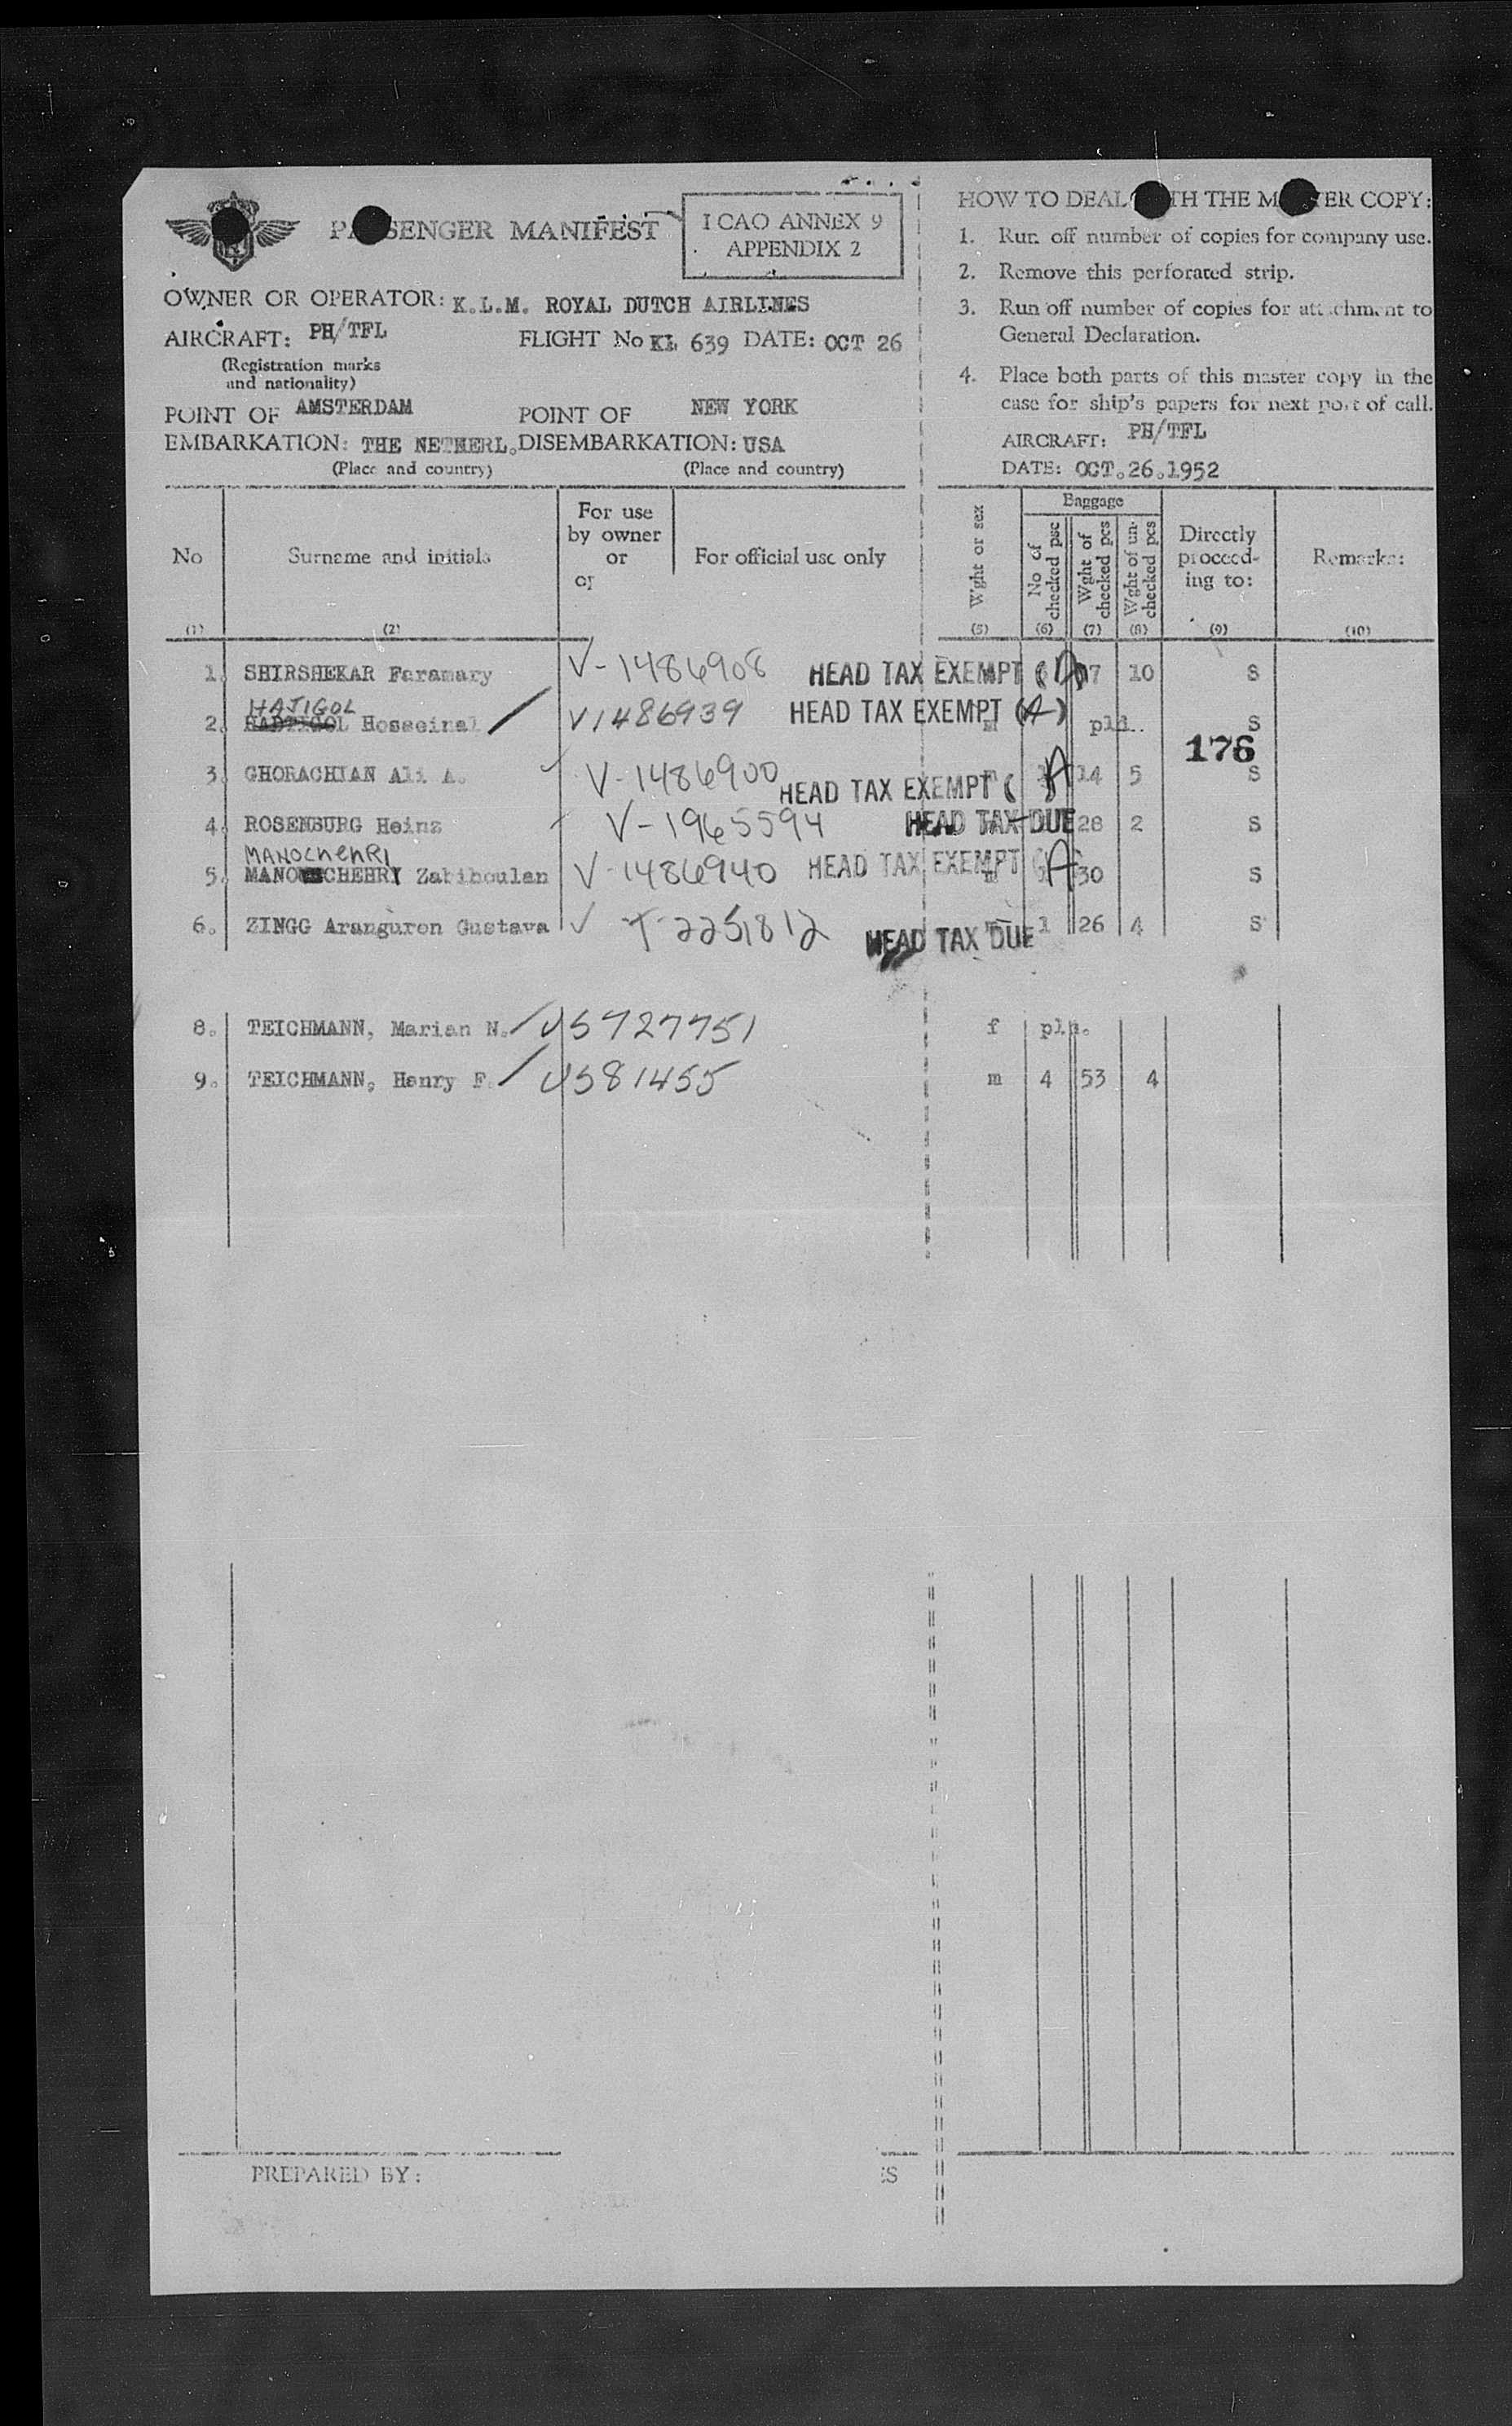 PASSENGER MANIFEST
I CAO ANNEX 9
APPENDIX 2
OWNER OR OPERATOR: K.L.M. ROYAL DUTCH AIRLINES
AIRCRAFT: PH/TFL
FLIGHT No KL 639 DATE: OCT 26
(Registration marks
and nationality)
POINT OF AMSTERDAM
POINT OF NEW YORK
EMBARKATION: THE NETHERL. DISEMBARKATION: USA
(Place and country)
(Place and country)
HOW TO DEAL WITH THE MASTER COPY:
1. Run off number of copies for company use.
2. Remove this perforated strip.
3. Run off number of copies for attachment to
General Declaration.
4. Place both parts of this master copy in the
case for ship's papers for next port of call.
AIRCRAFT: PH/TFL
DATE: OCT.26.1952
No
(1)
Surname and initials
(2)
For use
by owner
or
or
For official use only
Wght or sex
(5)
Baggage
No of
checked psc
(6)
Wght of
checked pcs
(7)
Wght of un-
checked pcs
(8)
Directly
proceed-
ing to:
(9)
Remarks:
(10)
1. SHIRSHEKAR Faramary V-1486908 HEAD TAX EXEMPT (A) 17 10 S
HAJIGOL
2. Hosseinal V1486939 HEAD TAX EXEMPT (A) m pld. S
176
3. GHORACHIAN Ali A. V-1486900 HEAD TAX EXEMPT ( )A 14 5 S
4. ROSENBURG Heinz V-1965594 HEAD TAX DUE 28 2 S
MANOCHEHRI
5. MANOUCHEHRY Zabihoulan V-1486940 HEAD TAX EXEMPT (A 30 S
6. ZINGG Aranguron Gustava V T-2251812 HEAD TAX DUE 1 26 4 S
8. TEICHMANN, Marian N. US727751 f pld.
9. TEICHMANN, Henry F. US81455 m 4 53 4
PREPARED BY:
ES